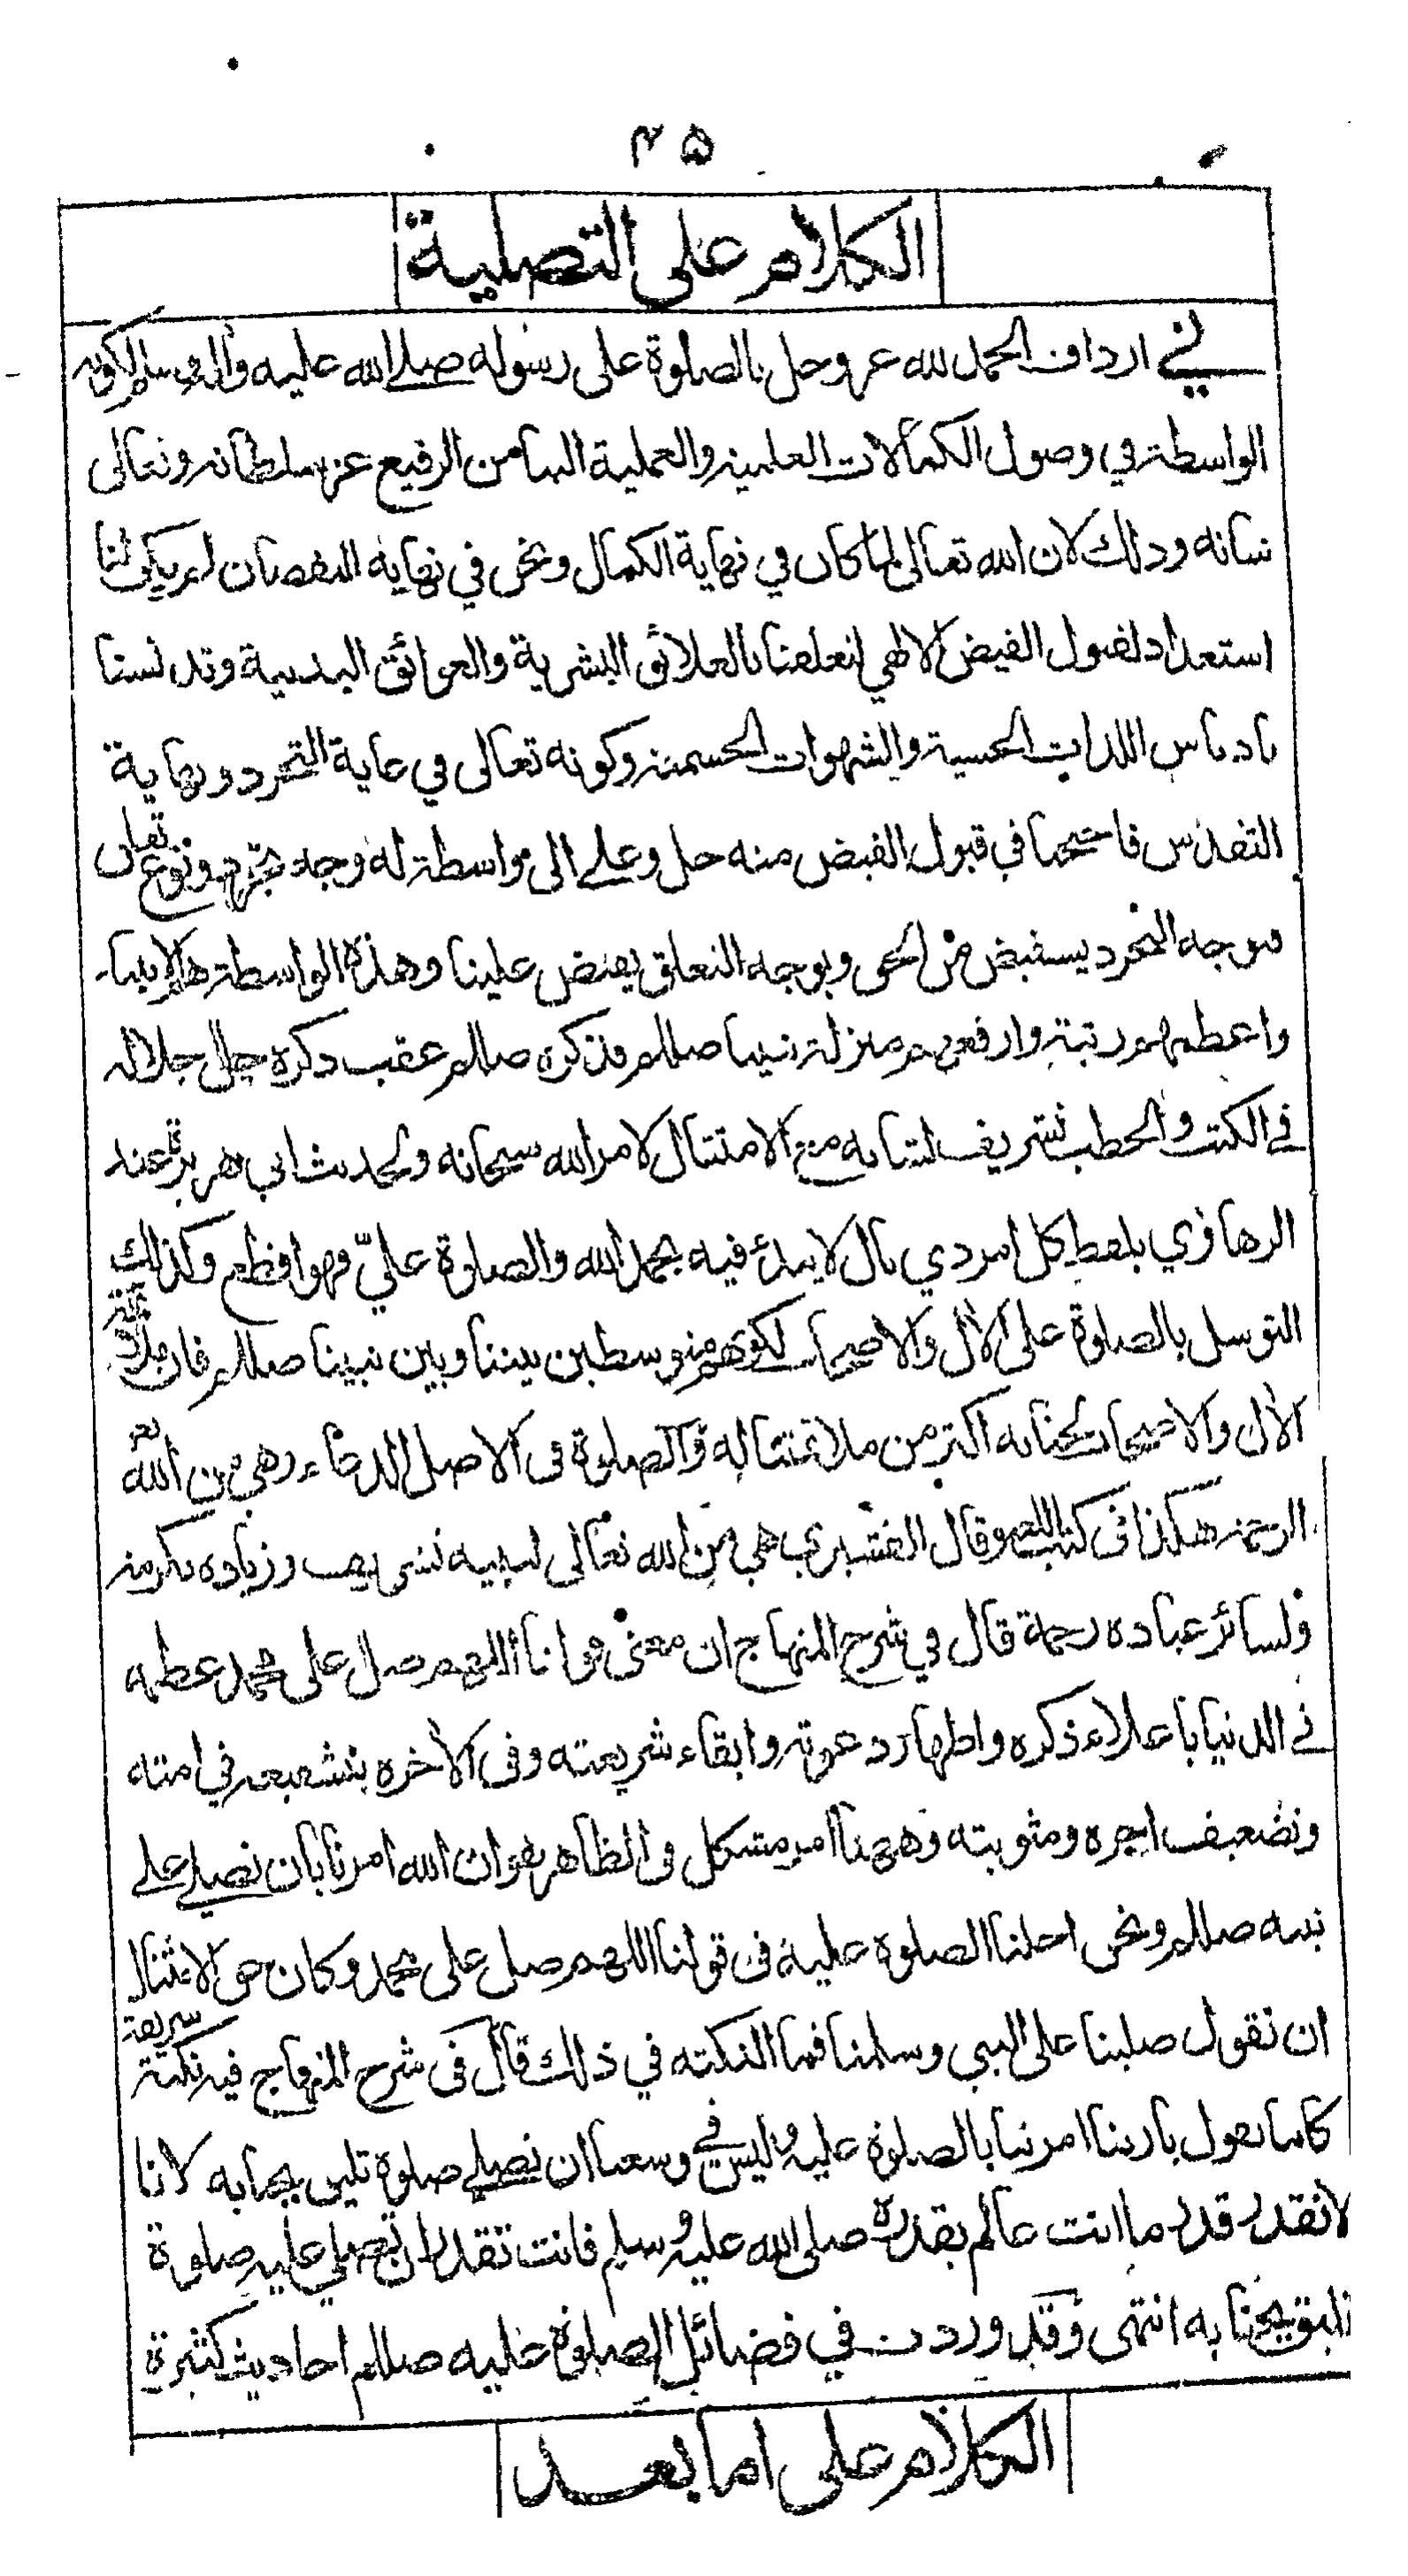 ۴۵
الكلام على التصلية
في ارداف الحمد لله عز وجل بالصلوة على رسوله صلى الله عليه واله وسلم لكونه
الواسطة في وصول الكمالات العلمية والعملية الينا من الرفيع عز سلطانه وتعالى
شانه وذلك لان الله تعالى لما كان في نهاية الكمال ونحن في نهاية النقصان لم يكن لنا
استعداد لقبول الفيض الالهي لتعلقنا بالعلائق البشرية والعوائق البدنية وتدنسنا
بادناس اللذات الحسية والشهوات الجسمية وكونه تعالى في غاية التجرد ونهاية
التقدس فاحتجنا في قبول الفيض منه جل وعلى الى واسطة له وجه تجرد ونوع تعلق
فبوجه التجرد يستفيض من الحق وبوجه التعلق يفيض علينا وهذه الواسطة هم الانبياء
واعظمهم رتبة وارفعهم منزلة نبينا صللم فذكره صللم عقب ذكره جل جلاله
في الكتب والخطب تشريف لشانه مع الامتثال لامر الله سبحانه ولحديث ابي هريرة عند
الرهاوي بلفظ كل امر ذي بال لا يبدء فيه بحمد الله والصلوة عليّ فهو اقطع وكذلك
التوسل بالصلوة على الال والاصحاب لكونهم متوسطين بيننا وبين نبينا صللم فان ملائمة
الال والاصحاب بجنابه اكثر من ملائمتنا له والصلوة في الاصل الدعاء وهي من الله
الرحمة هكذا في كتب اللغة وقال القشيري هي من الله تعالى لنبيه تشريف وزيادة تكرمة
ولسائر عباده رحمة قال في شرح المنهاج ان معنى قولنا اللهم صل على محمد عظمه
في الدنيا باعلاء ذكره واظهار دعوته وابقاء شريعته وفى الاخرة بتشفيعه في امته
وتضعيف اجره ومثوبته وههنا امر مشكل في الظاهر هو ان الله امرنا بان نصلي على
نبيه صللم ونحن احلنا الصلوة عليه في قولنا اللهم صل على محمد وكان حق الامتثال
ان نقول صلينا على النبي وسلمنا فما النكتة في ذلك قال في شرح المنهاج فيه نكتة شريفة
كاننا نقول يا ربنا امرتنا بالصلوة عليه وليس في وسعنا ان نصلي صلوة تليق بجنابه لانا
لا نقدر قدر ما انت عالم بقدره صلى الله عليه وسلم فانت تقدر ان تصلي عليه صلوة
تليق بجنابه انتهى وقد وردت في فضائل الصلوة عليه صللم احاديث كثيرة
الكلام على اما بعد